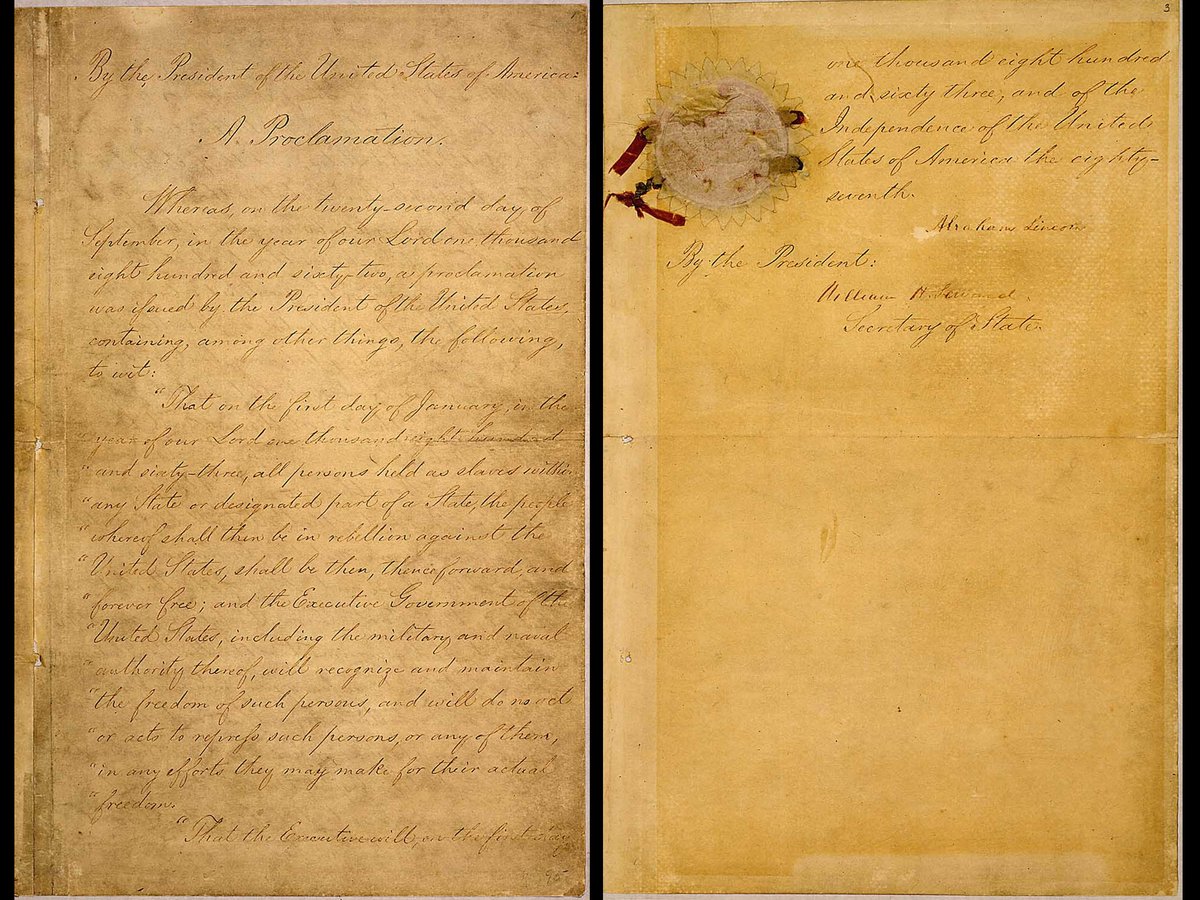 By the President of the United States of America:
A Proclamation.
Whereas, on the twenty-second day of
September, in the year of our Lord one thousand
eight hundred and sixty-two, a proclamation
was issued by the President of the United States,
containing, among other things, the following,
to wit:
"That on the first day of January, in the
"year of our Lord one thousand eight hundred
"and sixty-three, all persons held as slaves within
"any State or designated part of a State, the people
"whereof shall then be in rebellion against the
"United States, shall be then, thenceforward, and
"forever free; and the Executive Government of the
"United States, including the military and naval
"authority thereof, will recognize and maintain
"the freedom of such persons, and will do no act
"or acts to repress such persons, or any of them,
"in any efforts they may make for their actual
"freedom.
"That the Executive will, on the first day
95
3
one thousand eight hundred
and sixty three, and of the
Independence of the United
States of America the eighty-
seventh.
Abraham Lincoln
By the President:
William H. Seward,
Secretary of State.